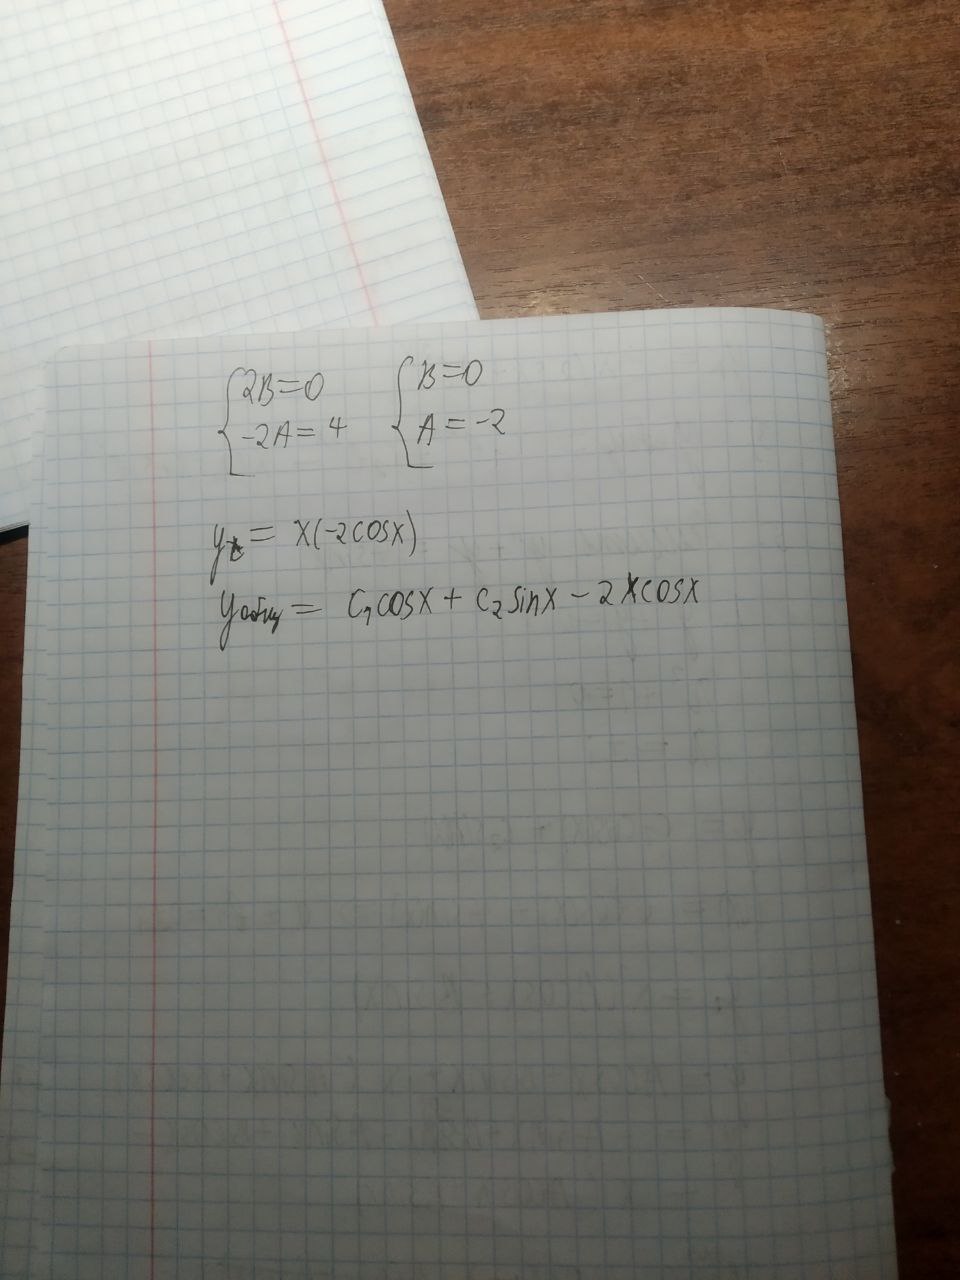 {2B=0 {B=0
{-2A=4 {A=-2
yₓ = x(-2cosx)
yобщ = C₁cosx + C₂sinx - 2xcosx